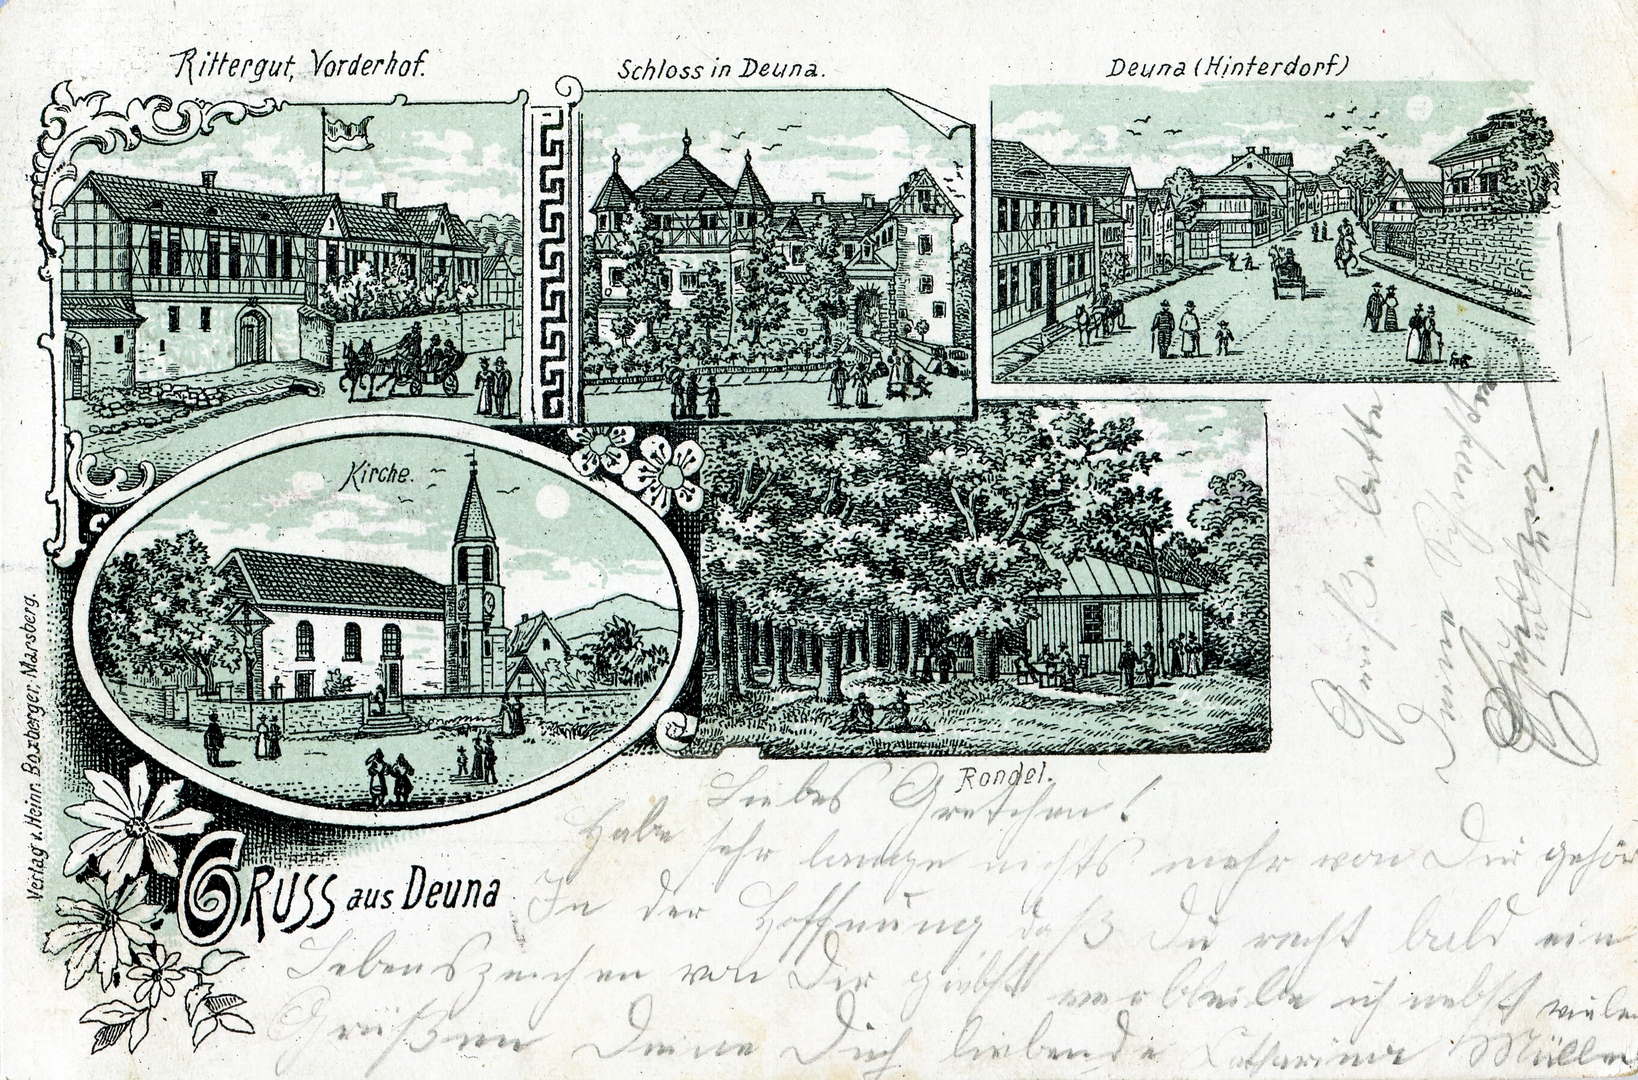 Rittergut, Vorderhof.
Schloss in Deuna.
Deuna (Hinterdorf)
Kirche.
Rondel.
Verlag v. Heinr. Boxberger, Marsberg.
GRUSS aus Deuna
Liebes Gretchen!
Habe sehr lange nichts mehr von Dir gehör
In der Hoffnung daß Du recht bald ein
Lebenszeichen von Dir giebst verbleibe ich nebst viele
Grüßen Deine Dich liebende Catharina Müller
Grüße bitte